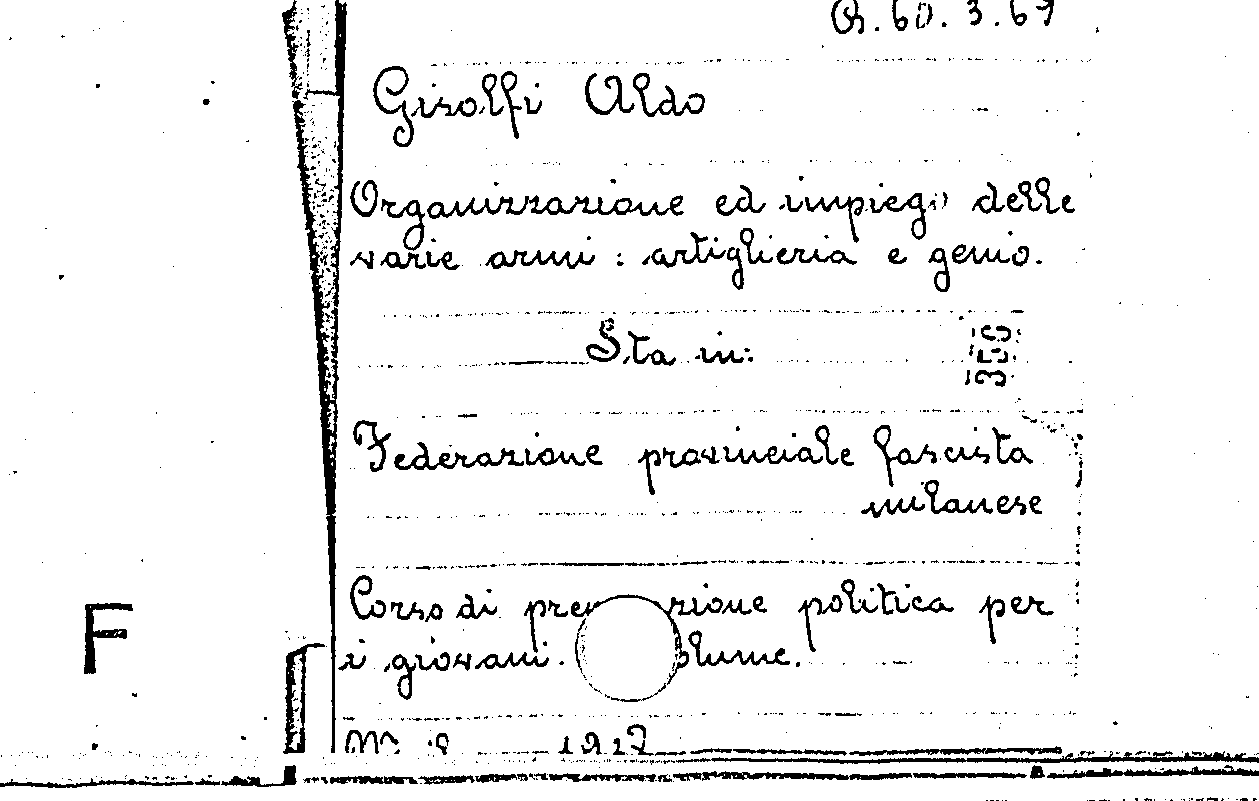 R.60.3.67
Gisolfi Aldo
Organizzazione ed impiego delle
varie armi : artiglieria e genio.
Sta in:
356
Federazione provinciale fascista
milanese
Corso di pre zione politica per
i giovani. lume.
F